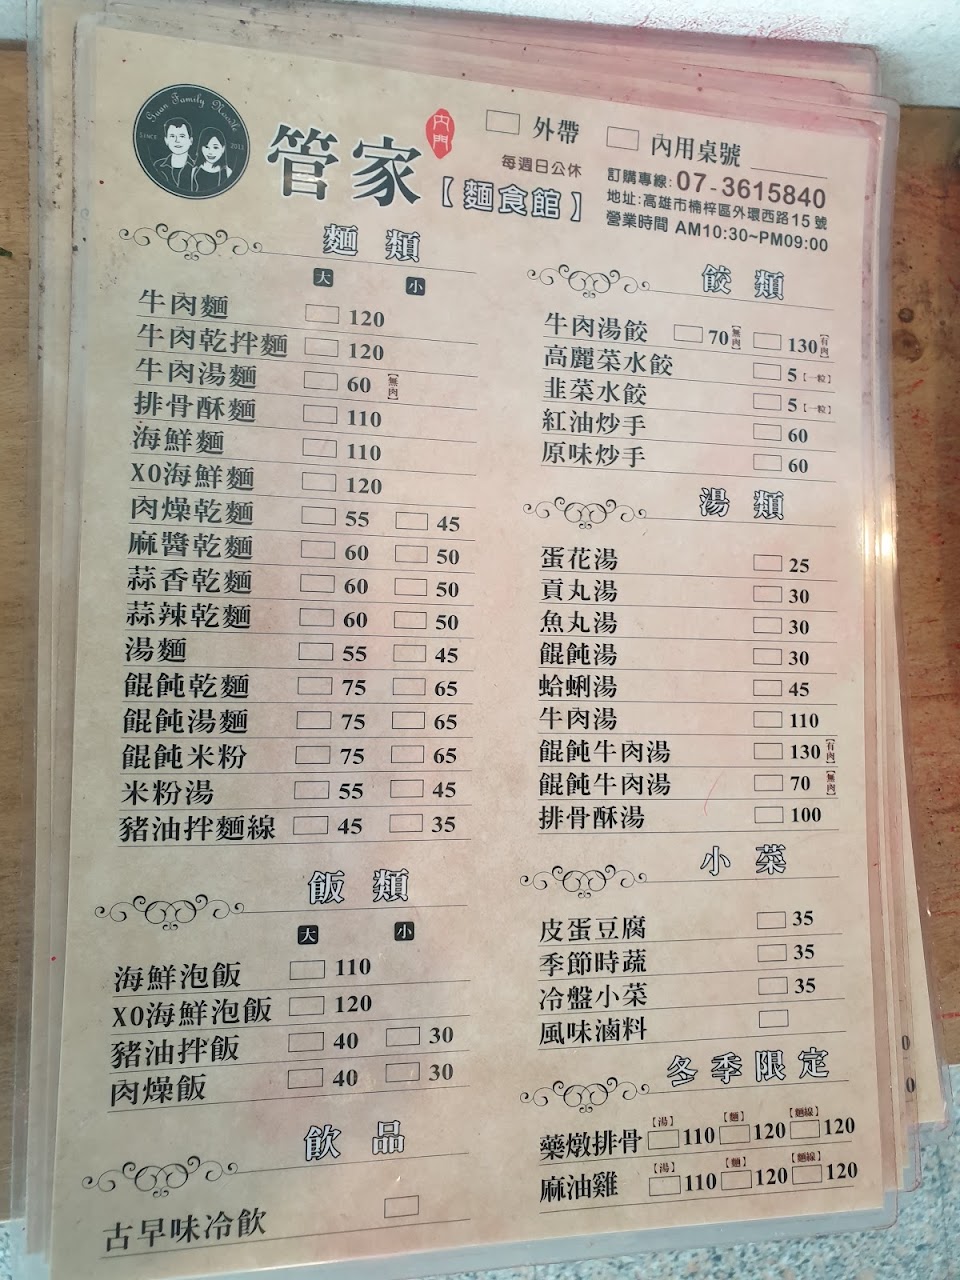 Guan Family Noodle
SINCE 2013
管家
內門
【麵食館】
外帶 內用桌號
每週日公休
訂購專線:07-3615840
地址:高雄市楠梓區外環西路15號
營業時間 AM10:30~PM09:00
麵類
大 小
牛肉麵 120
牛肉乾拌麵 120
牛肉湯麵 60【無肉】
排骨酥麵 110
海鮮麵 110
XO海鮮麵 120
肉燥乾麵 55 45
麻醬乾麵 60 50
蒜香乾麵 60 50
蒜辣乾麵 60 50
湯麵 55 45
餛飩乾麵 75 65
餛飩湯麵 75 65
餛飩米粉 75 65
米粉湯 55 45
豬油拌麵線 45 35
飯類
大 小
海鮮泡飯 110
XO海鮮泡飯 120
豬油拌飯 40 30
肉燥飯 40 30
飲品
古早味冷飲
餃類
牛肉湯餃 70【無肉】 130【有肉】
高麗菜水餃 5【一粒】
韭菜水餃 5【一粒】
紅油炒手 60
原味炒手 60
湯類
蛋花湯 25
貢丸湯 30
魚丸湯 30
餛飩湯 30
蛤蜊湯 45
牛肉湯 110
餛飩牛肉湯 130【有肉】
餛飩牛肉湯 70【無肉】
排骨酥湯 100
小菜
皮蛋豆腐 35
季節時蔬 35
冷盤小菜 35
風味滷料
冬季限定
藥燉排骨【湯】110【麵】120【麵線】120
麻油雞【湯】110【麵】120【麵線】120